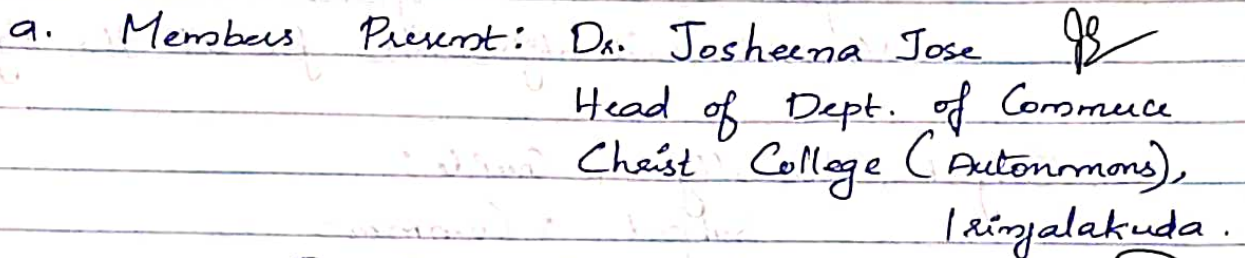 a. Members Present: Dr. Josheena Jose
Head of Dept. of Commerce
Christ College (Autonomous),
Irinjalakuda.